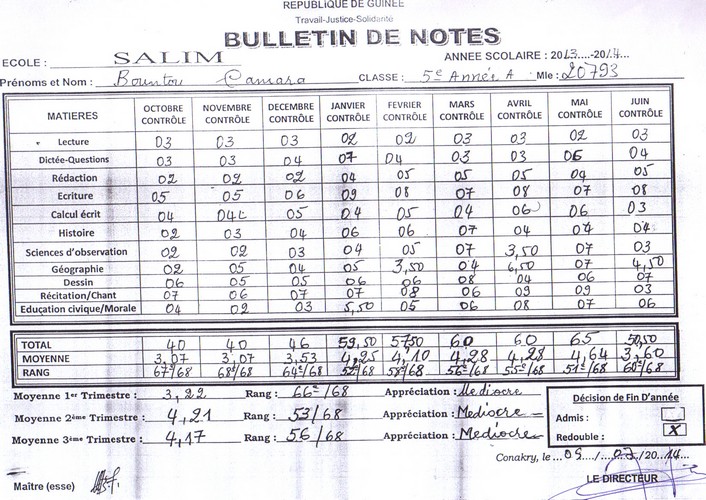 REPUBLIQUE DE GUINEE
Travail-Justice-Solidarité
BULLETIN DE NOTES
ECOLE : SALIM ANNÉE SCOLAIRE : 2013....-2014...
Prénoms et Nom : Bountou Camara CLASSE : 5e Année A Mle : 20793
MATIERES OCTOBRE CONTRÔLE NOVEMBRE CONTRÔLE DECEMBRE CONTRÔLE JANVIER CONTRÔLE FEVRIER CONTRÔLE MARS CONTRÔLE AVRIL CONTRÔLE MAI CONTRÔLE JUIN CONTRÔLE
Lecture 03 03 03 02 02 03 03 02 03
Dictée-Questions 03 03 04 07 04 03 03 06 04
Rédaction 02 02 02 04 05 05 05 04 05
Ecriture 05 05 06 09 08 07 08 07 08
Calcul écrit 04 04 05 04 05 04 06 06 03
Histoire 02 03 04 06 06 07 04 04 04
Sciences d'observation 02 02 03 04 05 07 3,50 07 03
Géographie 02 05 04 05 3,50 04 6,50 07 4,50
Dessin 06 05 05 06 06 08 04 06 07
Récitation/Chant 07 06 07 07 08 06 09 09 03
Education civique/Morale 04 02 03 5,50 05 06 08 07 06
TOTAL 40 40 46 59,50 5750 60 60 65 50,50
MOYENNE 3,07 3,07 3,53 4,25 4,10 4,28 4,28 4,64 3,60
RANG 67e/68 68e/68 64e/68 52e/68 58e/68 56e/68 55e/68 51e/68 60e/68
Moyenne 1er Trimestre : 3,22 Rang : 66e/68 Appréciation : Mediocre
Moyenne 2ème Trimestre : 4,21 Rang : 53/68 Appréciation : Mediocre
Moyenne 3ème Trimestre : 4,17 Rang : 56/68 Appréciation : Mediocre
Décision de Fin D'année
Admis :
Redouble : X
Conakry, le ...09..../....07../20..14....
Maître (esse) LE DIRECTEUR